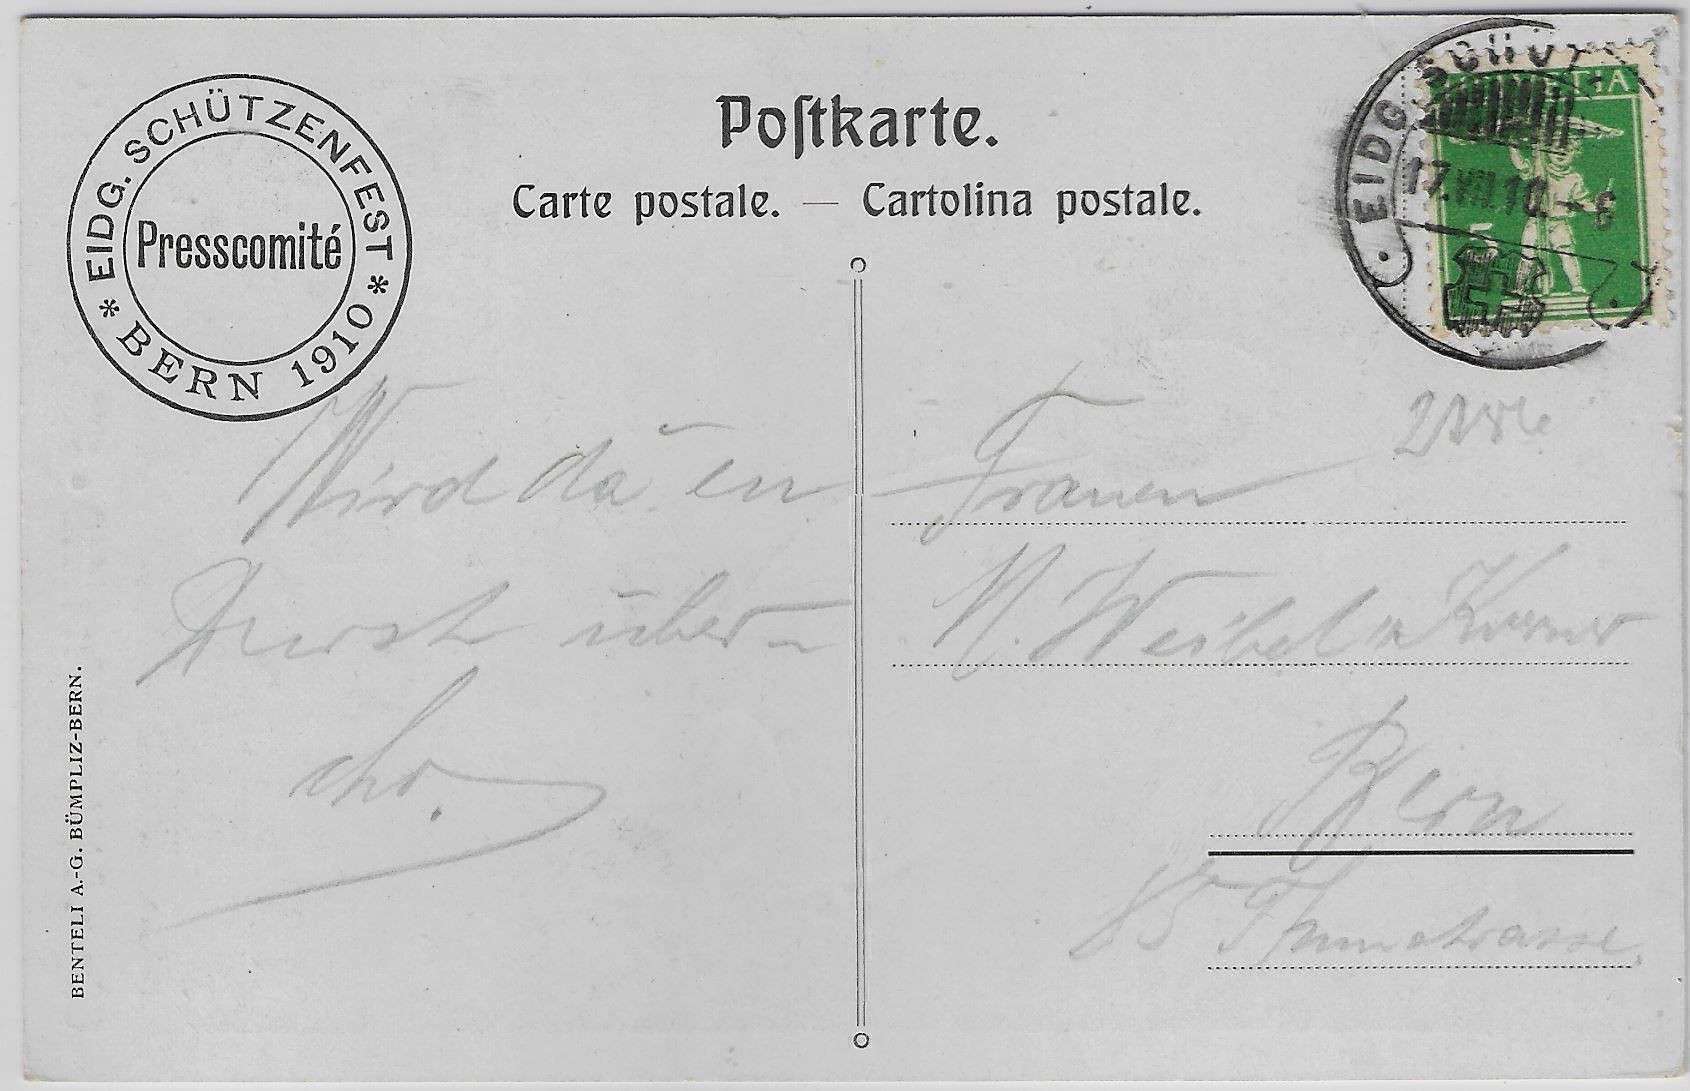 EIDG. SCHÜTZENFEST
Presscomité
* BERN 1910 *
Postkarte.
Carte postale. — Cartolina postale.
EIDG. SCHÜTZ
17.VII.10. – 8
5
Wird da en
Durst über-
cho.
Frauen
M. Weibel
Bern
85
BENTELI A.-G. BÜMPLIZ-BERN.